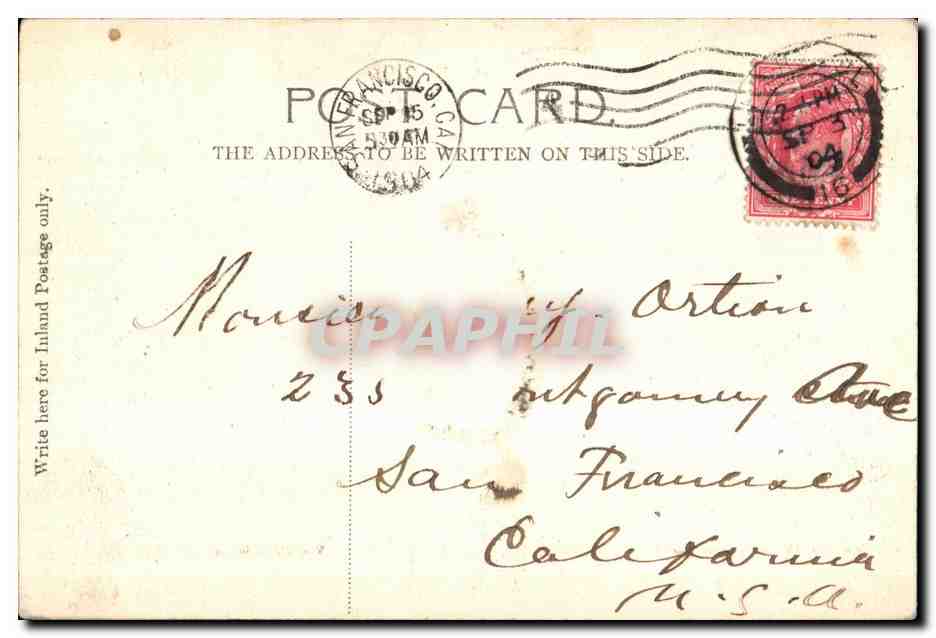 POST CARD.
THE ADDRESS TO BE WRITTEN ON THIS SIDE.
SAN FRANCISCO, CAL
SEP 15
530 AM
1904
2 PM
SP 3
04
16
Write here for Inland Postage only.
Monsieur y. Ortion
233 ntgomery Ave
San Francisco
California
U.S.A.
CPAPHIL